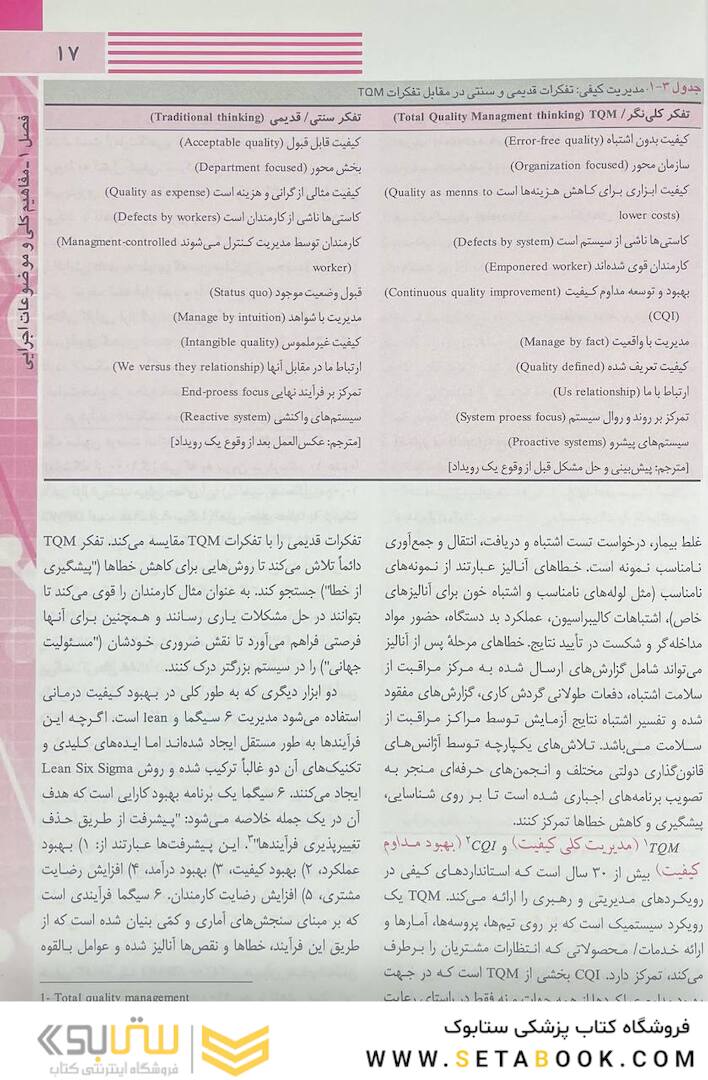 ۱۷
فصل ۱ - مفاهیم کلی و موضوعات اجرایی
جدول ۳-۱. مدیریت کیفی: تفکرات قدیمی و سنتی در مقابل تفکرات TQM
تفکر کلی‌نگر/ TQM (Total Quality Managment thinking)
کیفیت بدون اشتباه (Error-free quality)
سازمان محور (Organization focused)
کیفیت ابزاری برای کاهش هزینه‌ها است Quality as menns to)
lower costs)
کاستی‌ها ناشی از سیستم است (Defects by system)
کارمندان قوی شده‌اند (Emponered worker)
بهبود و توسعه مداوم کیفیت (Continuous quality improvement)
(CQI)
مدیریت با واقعیت (Manage by fact)
کیفیت تعریف شده (Quality defined)
ارتباط با ما (Us relationship)
تمرکز بر روند و روال سیستم (System proess focus)
سیستم‌های پیشرو (Proactive systems)
[مترجم: پیش‌بینی و حل مشکل قبل از وقوع یک رویداد]
تفکر سنتی/ قدیمی (Traditional thinking)
کیفیت قابل قبول (Acceptable quality)
بخش محور (Department focused)
کیفیت مثالی از گرانی و هزینه است (Quality as expense)
کاستی‌ها ناشی از کارمندان است (Defects by workers)
کارمندان توسط مدیریت کنترل می‌شوند Managment-controlled)
worker)
قبول وضعیت موجود (Status quo)
مدیریت با شواهد (Manage by intuition)
کیفیت غیرملموس (Intangible quality)
ارتباط ما در مقابل آنها (We versus they relationship)
تمرکز بر فرآیند نهایی End-proess focus
سیستم‌های واکنشی (Reactive system)
[مترجم: عکس‌العمل بعد از وقوع یک رویداد]
غلط بیمار، درخواست تست اشتباه و دریافت، انتقال و جمع‌آوری
نامناسب نمونه است. خطاهای آنالیز عبارتند از نمونه‌های
نامناسب (مثل لوله‌های نامناسب و اشتباه خون برای آنالیزهای
خاص)، اشتباهات کالیبراسیون، عملکرد بد دستگاه، حضور مواد
مداخله‌گر و شکست در تأیید نتایج. خطاهای مرحلهٔ پس از آنالیز
می‌تواند شامل گزارش‌های ارسال شده به مرکز مراقبت از
سلامت اشتباه، دفعات طولانی گردش کاری، گزارش‌های مفقود
شده و تفسیر اشتباه نتایج آزمایش توسط مراکز مراقبت از
سلامت می‌باشد. تلاش‌های یکپارچه توسط آژانس‌های
قانون‌گذاری دولتی مختلف و انجمن‌های حرفه‌ای منجر به
تصویب برنامه‌های اجباری شده است تا بر روی شناسایی،
پیشگیری و کاهش خطاها تمرکز کنند.
TQM۱ (مدیریت کلی کیفیت) و CQI۲ (بهبود مداوم
کیفیت) بیش از ۳۰ سال است که استانداردهای کیفی در
رویکردهای مدیریتی و رهبری را ارائه می‌کند. TQM یک
رویکرد سیستمیک است که بر روی تیم‌ها، پروسه‌ها، آمارها و
ارائه خدمات/ محصولاتی که انتظارات مشتریان را برطرف
می‌کند، تمرکز دارد. CQI بخشی از TQM است که در جهت
تفکرات قدیمی را با تفکرات TQM مقایسه می‌کند. تفکر TQM
دائماً تلاش می‌کند تا روش‌هایی برای کاهش خطاها ("پیشگیری
از خطا") جستجو کند. به عنوان مثال کارمندان را قوی می‌کند تا
بتوانند در حل مشکلات یاری رسانند و همچنین برای آنها
فرصتی فراهم می‌آورد تا نقش ضروری خودشان ("مسئولیت
جهانی") را در سیستم بزرگتر درک کنند.
دو ابزار دیگری که به طور کلی در بهبود کیفیت درمانی
استفاده می‌شود مدیریت ۶ سیگما و lean است. اگرچه این
فرآیندها به طور مستقل ایجاد شده‌اند اما ایده‌های کلیدی و
تکنیک‌های آن دو غالباً ترکیب شده و روش Lean Six Sigma
ایجاد می‌کنند. ۶ سیگما یک برنامه بهبود کارایی است که هدف
آن در یک جمله خلاصه می‌شود: "پیشرفت از طریق حذف
تغییرپذیری فرآیندها"۳. این پیشرفت‌ها عبارتند از: ۱) بهبود
عملکرد، ۲) بهبود کیفیت، ۳) بهبود درآمد، ۴) افزایش رضایت
مشتری، ۵) افزایش رضایت کارمندان. ۶ سیگما فرآیندی است
که بر مبنای سنجش‌های آماری و کمّی بنیان شده است که از
طریق این فرآیند، خطاها و نقص‌ها آنالیز شده و عوامل بالقوه
1- Total quality management
فروشگاه کتاب پزشکی ستابوک
WWW.SETABOOK.COM
ستابوک
فروشگاه اینترنتی کتاب